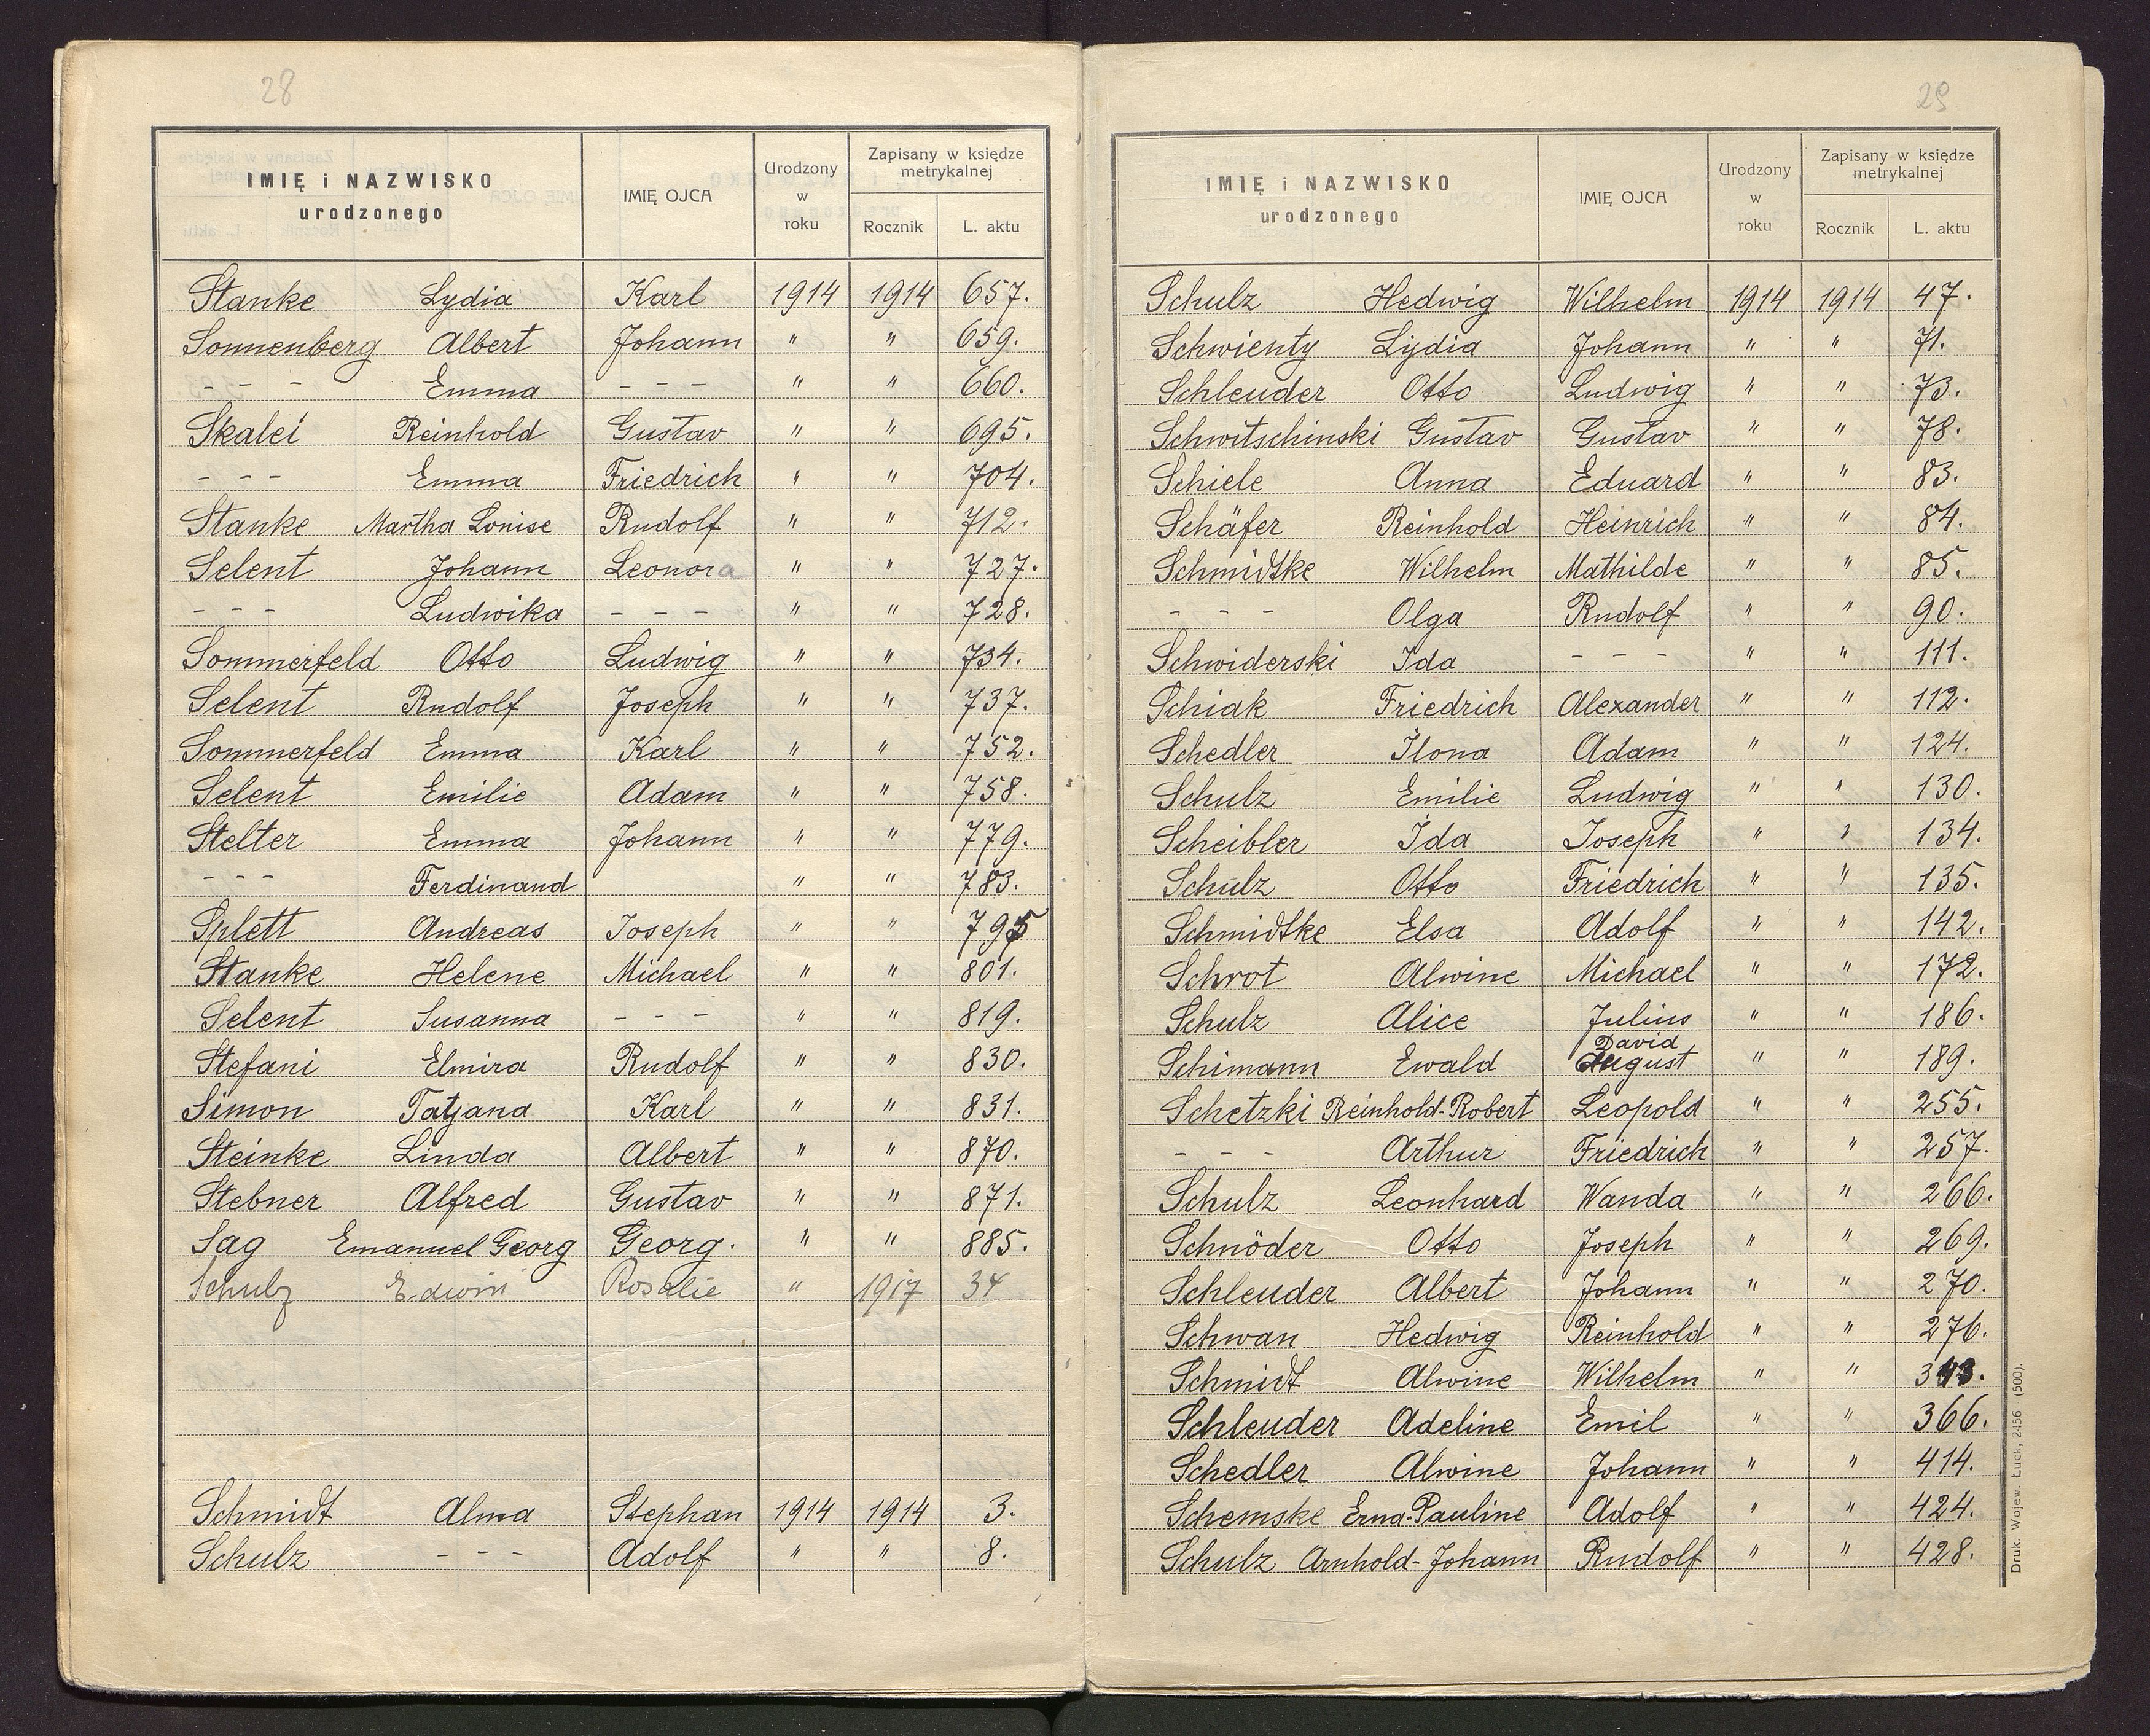 28
IMIĘ i NAZWISKO
urodzonego
IMIĘ OJCA
Urodzony
w
roku
Zapisany w księdze
metrykalnej
Rocznik L. aktu
Stanke Lydia Karl 1914 1914 657.
Sonnenberg Albert Johann " " 659.
- - - Emma - - - " " 660.
Skalei Reinhold Gustav " " 695.
- - - Emma Friedrich " " 704.
Stanke Martha Louise Rudolf " " 712.
Selent Johann Leonora " " 727.
- - - Ludwika - - - " " 728.
Sommerfeld Otto Ludwig " " 734.
Selent Rudolf Joseph " " 737.
Sommerfeld Emma Karl " " 752.
Selent Emilie Adam " " 758.
Stelter Emma Johann " " 779.
- - - Ferdinand " " 783.
Splett Andreas Joseph " " 795
Stanke Helene Michael " " 801.
Selent Susanna - - - " " 819.
Stefani Elmira Rudolf " " 830.
Simon Tatjana Karl " " 831.
Steinke Linda Albert " " 870.
Stebner Alfred Gustav " " 871.
Sag Emanuel Georg Georg. " " 885.
Schulz Edwin Rosalie " 1917 34
Schmidt Alma Stephan 1914 1914 3.
Schulz - - - Adolf " " 8.
29
IMIĘ i NAZWISKO
urodzonego
IMIĘ OJCA
Urodzony
w
roku
Zapisany w księdze
metrykalnej
Rocznik L. aktu
Schulz Hedwig Wilhelm 1914 1914 47.
Schwienty Lydia Johann " " 71.
Schleuder Otto Ludwig " " 73.
Schwitschinski Gustav Gustav " " 78.
Schiele Anna Eduard " " 83.
Schäfer Reinhold Heinrich " " 84.
Schmidtke Wilhelm Mathilde " " 85.
- - - Olga Rudolf " " 90.
Schwiderski Ida - - - " " 111.
Schiak Friedrich Alexander " " 112.
Schedler Ilona Adam " " 124.
Schulz Emilie Ludwig " " 130.
Scheibler Ida Joseph " " 134.
Schulz Otto Friedrich " " 135.
Schmidtke Elsa Adolf " " 142.
Schrot Alwine Michael " " 172.
Schulz Alice Julius " " 186.
David
Schimann Ewald August " " 189.
Schetzki Reinhold-Robert Leopold " " 255.
- - - Arthur Friedrich " " 257.
Schulz Leonhard Wanda " " 266.
Schnöder Otto Joseph " " 269.
Schleuder Albert Johann " " 270.
Schwan Hedwig Reinhold " " 276.
Schmidt Alwine Wilhelm " "
Schleuder Adeline Emil " " 366.
Schedler Alwine Johann " " 414.
Schemske Erna-Pauline Adolf " " 424.
Schulz Arnhold-Johann Rudolf " " 428.
Druk. Wojew. Łuck, 2456 (500).